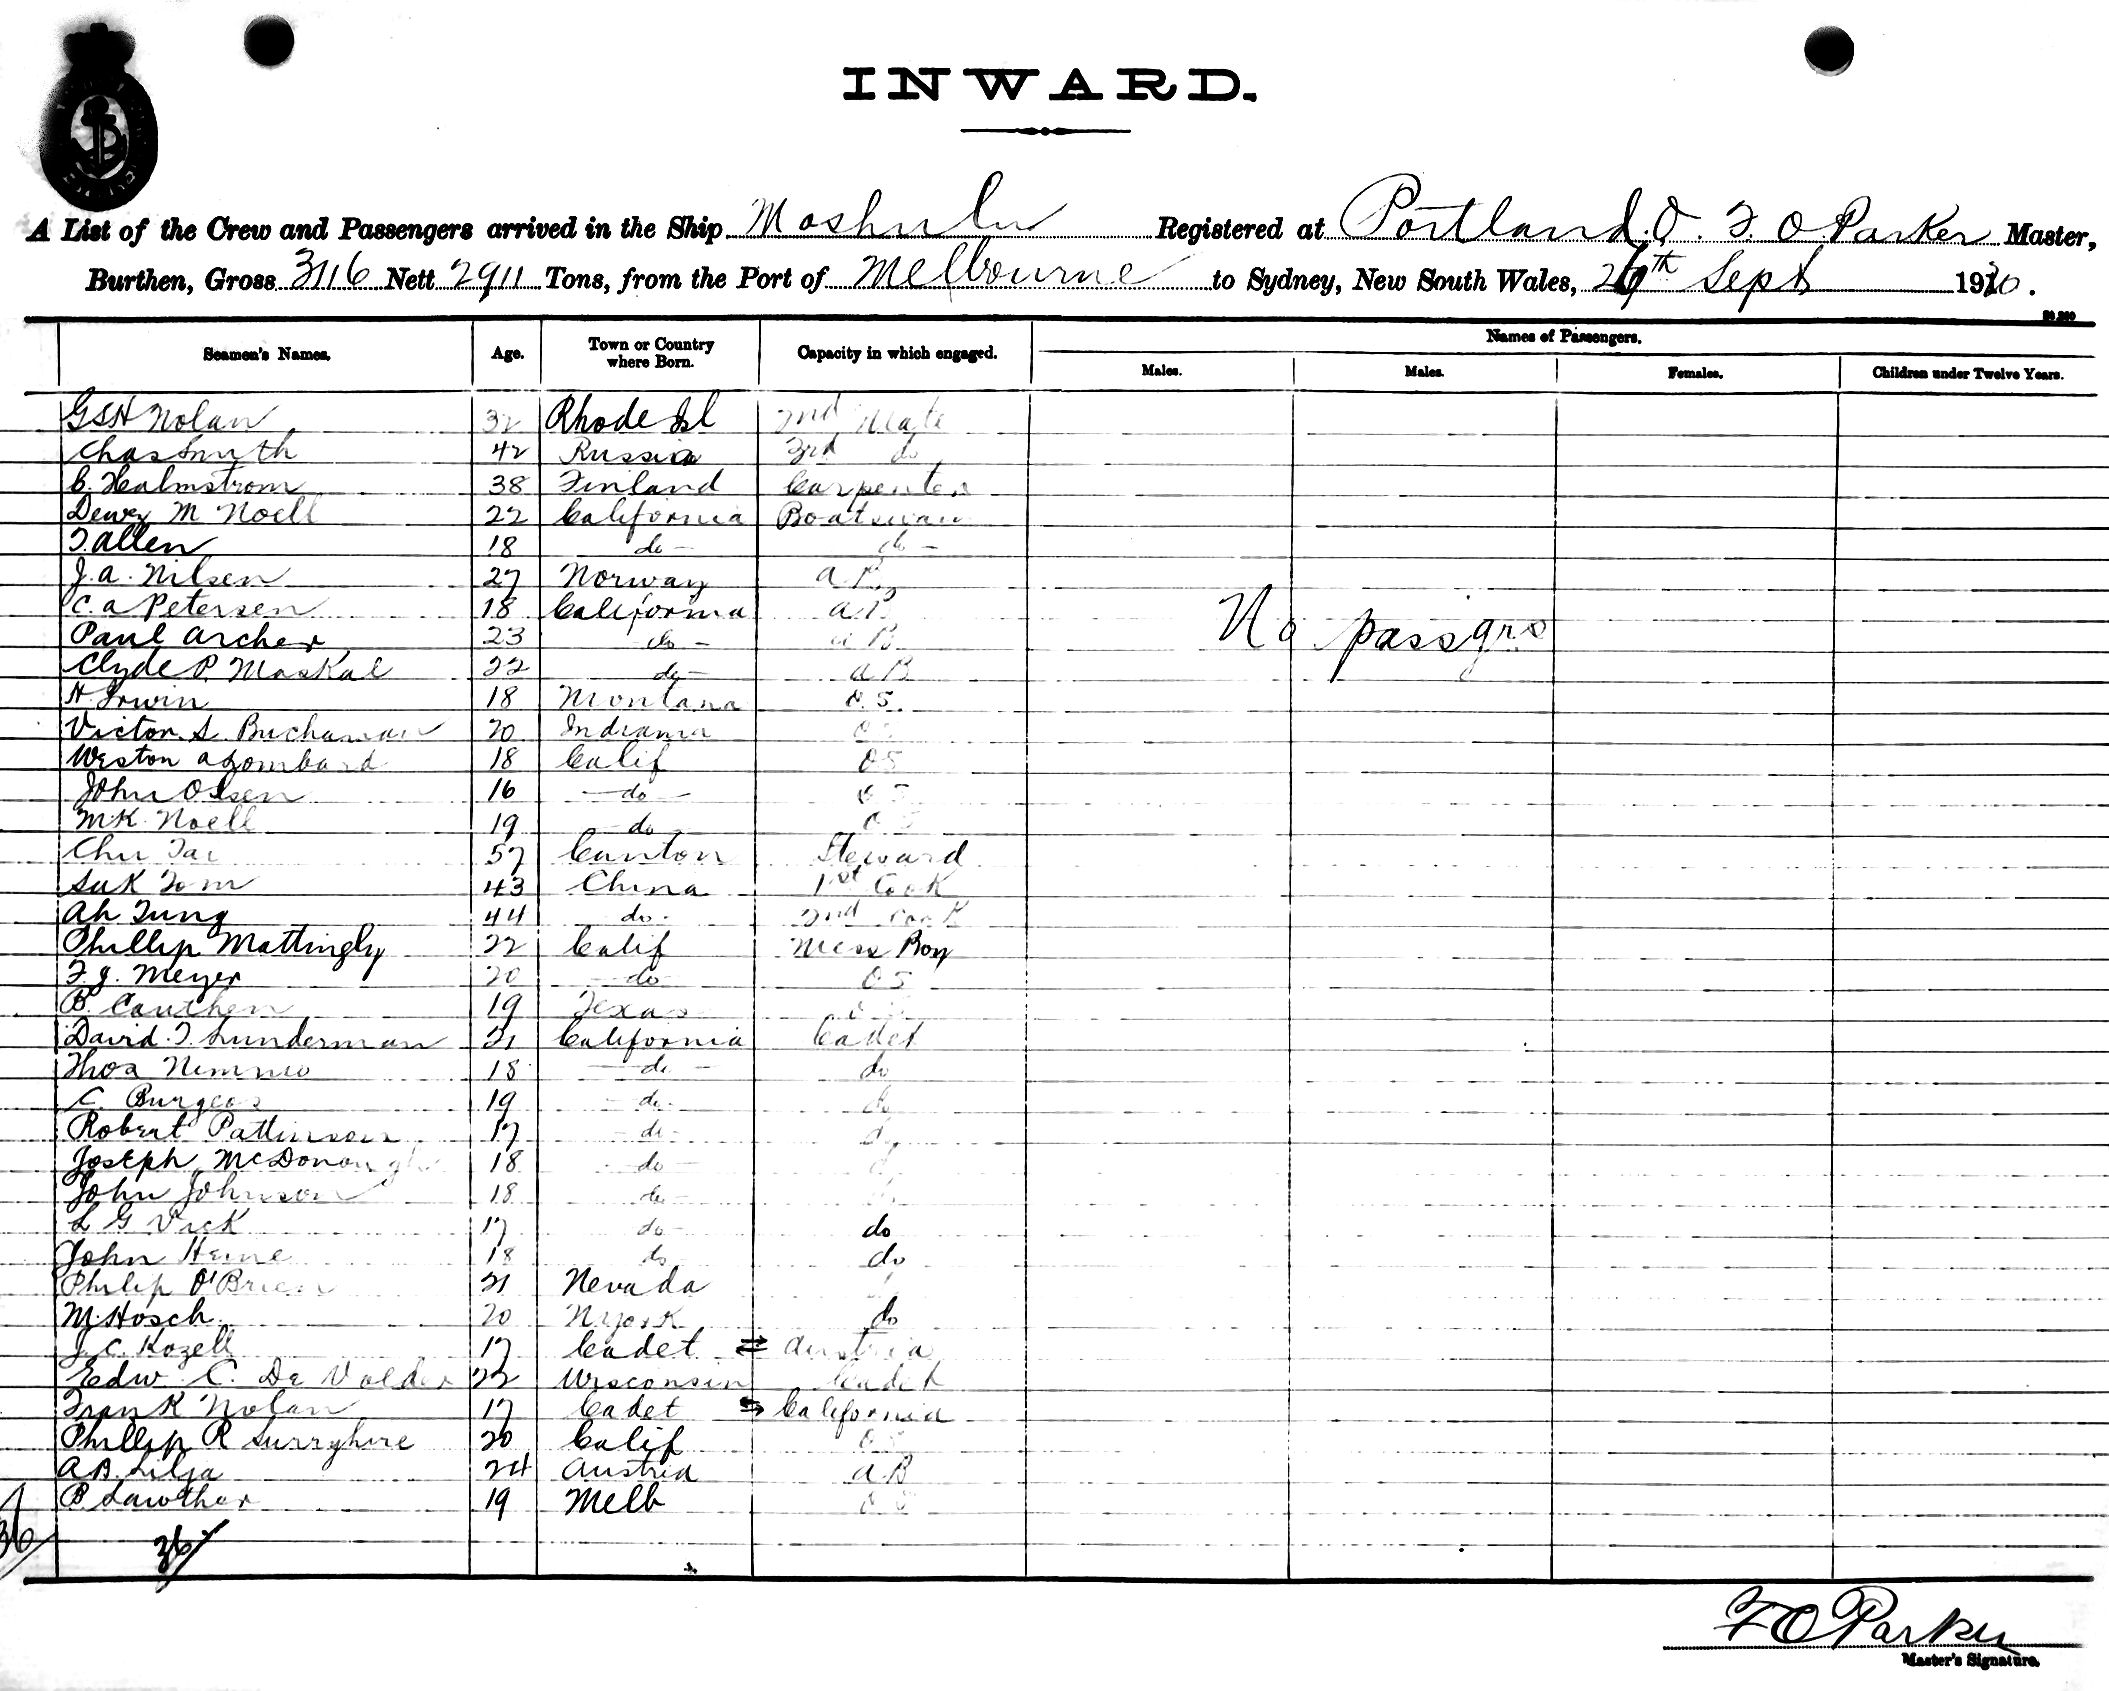 INWARD.
A List of the Crew and Passengers arrived in the Ship Moshulu Registered at Portland.O. F. O. Parker Master,
Burthen, Gross 3116 Nett 2911 Tons, from the Port of Melbourne to Sydney, New South Wales, Sept 1920.
Names of Passengers.
Seamen's Names. Age. Town or Country where Born. Capacity in which engaged. Males. Males. Females. Children under Twelve Years.
GSH Nolan 32 Rhode Isl 2nd Mate
Chas Smyth 42 Russia 3rd do
C. Halmstrom 38 Finland Carpenter
Dewey M Noell 22 California Boatswain
T. Allen 18 do - do -
J. A. Nilsen 27 Norway a B
C. A Petersen 18 California a B
Paul Archer 23 - do - a B
No passgrs
Clyde P. Maskal 22 - do - a B
H. Irwin 18 Montana O.S.
Victor S. Buchanan 20 Indiana O S
Weston A Lombard 18 Calif O S
John Olsen 16 - do - O S
M.K. Noell 19 - do - O S
Chu Tai 57 Canton Steward
Suk Tom 43 China 1st Cook
Ah Tung 44 do. 2nd Cook
Phillip Mattingly 22 Calif Mess Boy
F. J. Meyer 20 - do - O S
B. Cauthen 19 Texas O S
David T. Lunderman 21 California Cadet
Thos Nimmo 18 - do - do
C. Burgess 19 - do - do
Robert Pattinson 17 - do - do
Joseph McDonough 18 - do - do
John Johnson 18 - do -
L G Vick 17 do - do
John Heine 18 do do
Philip O'Brien 21 Nevada
M. Hosch 20 N york do
J. C. Kozell 17 Cadet ⇄ Austria
Edw. C. De Volder 22 Wisconsin Cadet
Frank Nolan 17 Cadet ⇆ California
Phillip R Surryhne 20 Calif O S
A. B. Lilja 24 Austria a B
B Lawther 19 Melb O S
36/
36/
F O Parker
Master's Signature.